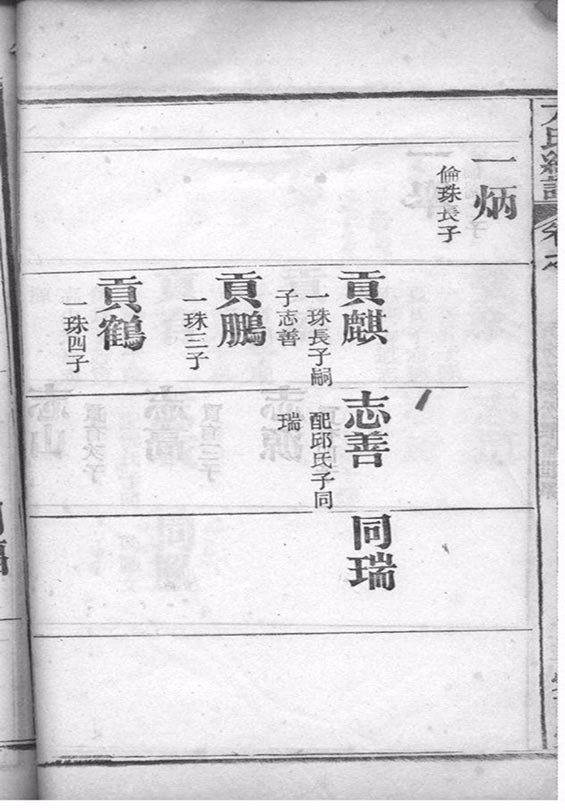 一炳
倫珠長子
貢麒
一珠長子嗣
子志善
貢鵬
一珠三子
貢鶴
一珠四子
志善
配邱氏子同
瑞
同瑞